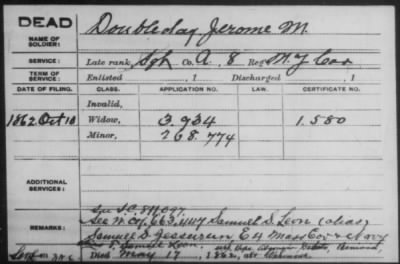 DEAD
NAME OF SOLDIER:
Doubleday Jerome M.
SERVICE:
Late rank, Sgt Co. A, 8 Reg. N. Y. Cav
TERM OF SERVICE:
Enlisted , 1 Discharged , 1
DATE OF FILING. CLASS. APPLICATION NO. LAW. CERTIFICATE NO.
Invalid,
1862 Oct 10 Widow, 3.934 1.580
Minor, 268.774
ADDITIONAL SERVICES:
REMARKS:
See W Ctf 663.447 Samuel D. Leon (alias)
Samuel D. Jessurun E 4 Mass Cav & Navy
Died May 17, 1862, at